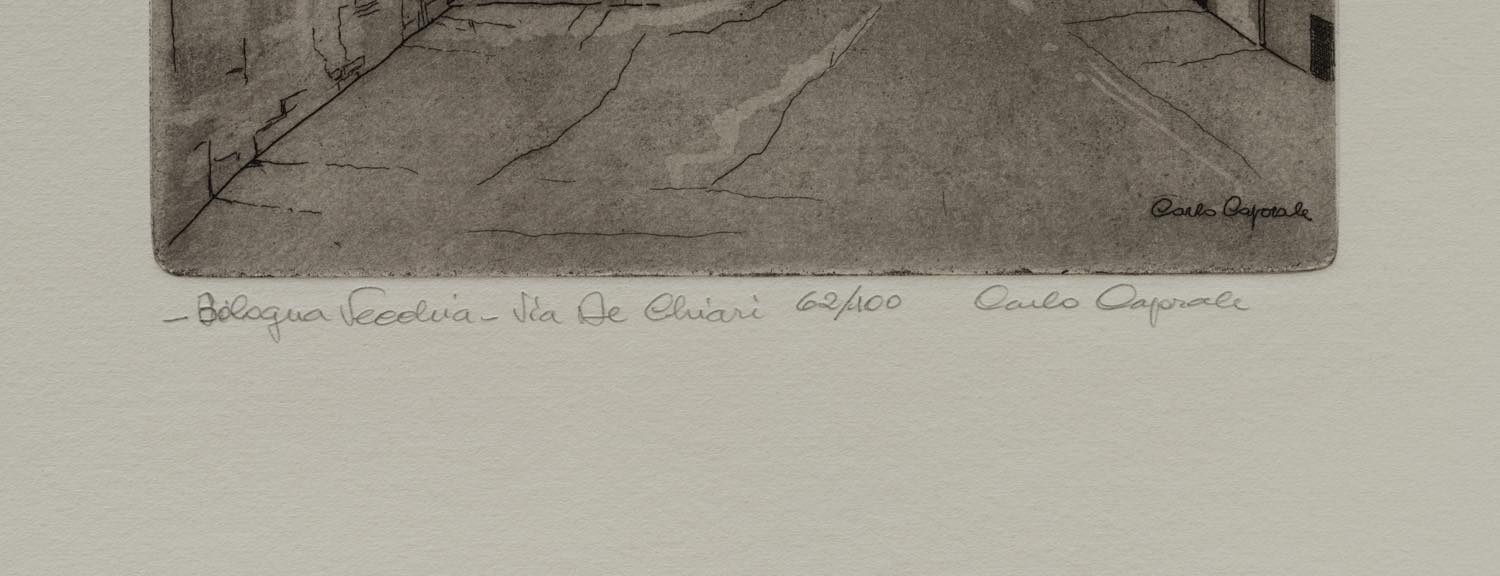 Carlo Caporale
– Bologna Vecchia – Via De Chiari 62/100 Carlo Caporale